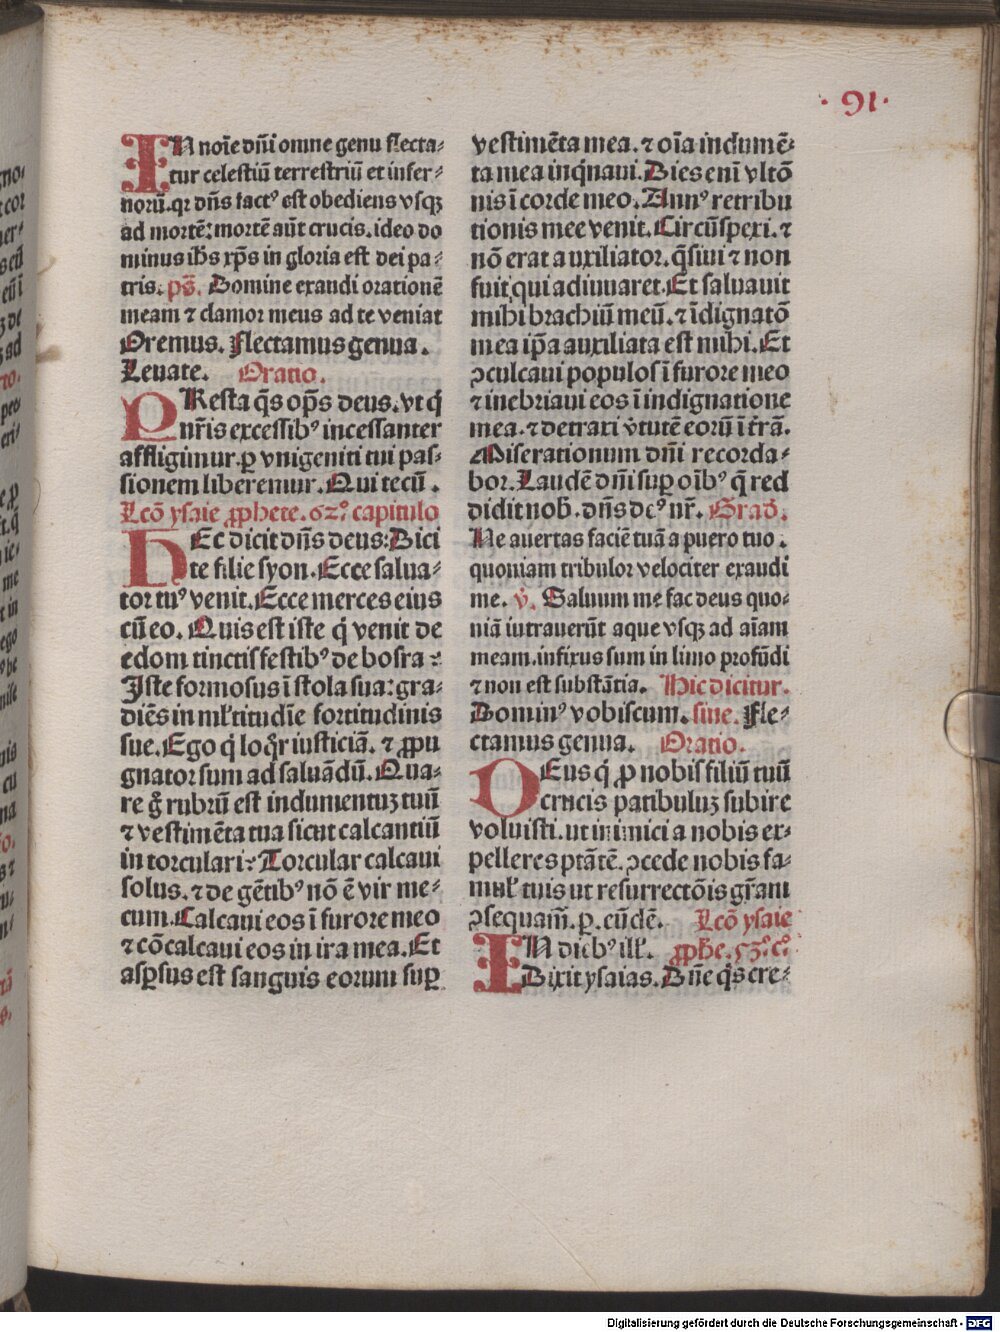 ·91·
IN noīe dn̄i omne genu flecta⸗
tur celestiū terrestriū et infer⸗
norū.qr dn̄s factꝰ est obediens vsqꝫ
ad mortē: mortē aūt crucis. ideo do
minus ih̄s xp̄s in gloria est dei pa⸗
tris. pṡ. Domine exaudi orationē
meam ⁊ clamor meus ad te veniat
Oremus. Flectamus genua.
Leuate. Oratio.
PResta q̄s op̄s deus. vt q̇
nr̄is excessibꝰ incessanter
affligimur. ꝑ vnigeniti tui pas⸗
sionem liberemur. Qui tecū.
Lcō ysaie ꝓphete. 62° capitulo
HEc dicit dn̄s deus: Dici
te filie syon. Ecce salua⸗
tor tuꝰ venit. Ecce merces eius
cū eo. Quis est iste q̇ venit de
edom tinctis festibꝰ de bosra⸗
Iste formosus ī stola sua: gra⸗
diēs in mł̄titudīe fortitudinis
sue. Ego q̇ loq̄r iusticiā. ⁊ ꝓpu
gnator sum ad saluādū. Qua⸗
re g̊ rubrū est indumentuꝫ tuū
⁊ vestimēta tua sicut calcantiū
in torculari⸗ Torcular calcaui
solus. ⁊ de gētibꝰ nō ē vir me⸗
cum. Calcaui eos ī furore meo
⁊ cōcalcaui eos in ira mea. Et
asꝑsus est sanguis eorum suꝑ
vestimēta mea. ⁊ oīa indumē⸗
ta mea inq̇naui. Dies enī vltō
nis ī corde meo. Annꝰ retribu
tionis mee venit. Circūspexi. ⁊
nō erat auxiliator. q̄siui ⁊ non
fuit qui adiuuaret. Et saluauit
mihi brachiū meū. ⁊ īdignatō
mea ip̄a auxiliata est mihi. Et
ↄculcaui populos ī furore meo
⁊ inebriaui eos ī indignatione
mea. ⁊ detraxi v̇tutē eorū ī t̄rā.
Miserationum dn̄i recorda⸗
bor. Laudē dn̄i suꝑ oībꝰ q̇ red
didit nob̄. dn̄s deꝰ nr̄. Grad̄.
Ne auertas faciē tuā a puero tuo.
quoniam tribulor velociter exaudi
me. v̇. Saluum me fac deus quo⸗
niā iutrauerūt aque vsqꝫ ad aīam
meam. infixus sum in limo profūdi
⁊ non est substātia. Hic dicitur.
Dominꝰ vobiscum. siue. Fle⸗
ctamus genua. Oratio.
DEus q̇ ꝓ nobis filiū tuū
crucis patibuluꝫ subire
voluisti. ut inimici a nobis ex⸗
pelleres ptātē. ↄcede nobis fa⸗
mul̄ tuis ut resurrectōis gr̄am
ↄsequam̄. ꝑ. eūdē. Lcō ysaie
IN diebꝰ ill̄. ꝓph̄e. 53.° c.°
Dixit ysaias. Dn̄e q̇s cre⸗
Digitalisierung gefördert durch die Deutsche Forschungsgemeinschaft - DFG